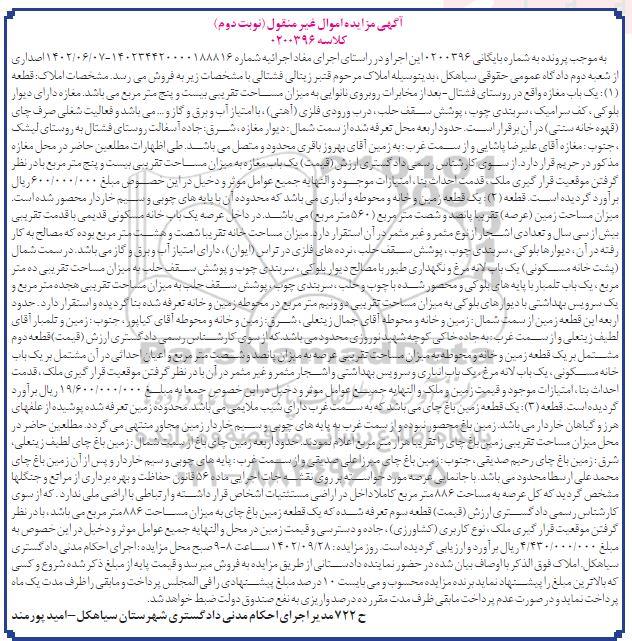 آگهی مزایده اموال غیر منقول (نوبت دوم)
کلاسه ۰۲۰۰۳۹۶
به موجب پرونده به شماره بایگانی ۰۲۰۰۳۹۶ این اجرا و در راستای اجرای مفاد اجرائیه شماره ۱۴۰۲۳۴۴۲۰۰۰۰۱۸۸۸۱۶-۱۴۰۲/۰۶/۰۷ اصداری
از شعبه دوم دادگاه عمومی حقوقی سیاهکل، بدینوسیله املاک مرحوم قنبر زینالی فشتالی با مشخصات زیر به فروش می رسد. مشخصات املاک: قطعه
(۱): یک باب مغازه واقع در روستای فشتال -بعد از مخابرات روبروی نانوایی به میزان مساحت تقریبی بیست و پنج متر مربع می باشد. مغازه دارای دیوار
بلوکی، کف سرامیک، سربندی چوب، پوشش سقف حلب، درب ورودی فلزی (آهنی)، با امتیاز آب و برق و گاز و... می باشد و فعالیت شغلی صرف چای
(قهوه خانه سنتی) در آن برقرار است. حدود اربعه محل تعرفه شده از سمت شمال: دیوار مغازه، شرق: جاده آسفالت روستای فشتال به روستای لیشک
، جنوب: مغازه آقای علیرضا پاشایی و از سمت غرب: به زمین آقای بهروز باقری محدود و متصل می باشد. طی اظهارات مطلعین حاضر در محل مغازه
مذکور در حریم قرار دارد. از سوی کارشناس رسمی دادگستری ارزش (قیمت) یک باب مغازه به میزان مساحت تقریبی بیست و پنج متر مربع با در نظر
گرفتن موقعیت قرار گیری ملک، قدمت احداث بنا، امتیازات موجود و النهایه جمیع عوامل موثر و دخیل در این خصوص مبلغ ۶۰۰/۰۰۰/۰۰۰ ریال
برآورد گردیده است. قطعه (۲): یک قطعه زمین و خانه و محوطه و انباری می باشد که محدوده آن با پایه های چوبی و سیم خاردار محصور شده است.
میزان مساحت زمین (عرصه) تقریبا پانصد و شصت متر مربع (۵۶۰ متر مربع) می باشد. در داخل عرصه یک باب خانه مسکونی قدیمی با قدمت تقریبی
بیش از سی سال و تعدادی اشجار از نوع مثمر و غیر مثمر در آن استقرار دارد. میزان مساحت خانه تقریبا شصت و هشت متر مربع بوده که مصالح به کار
رفته در آن، دیوارها بلوکی، سربندی چوب، پوشش سقف حلب، نرده های فلزی در تراس (ایوان)، دارای امتیاز آب و برق و گاز می باشد. در سمت شمال
(پشت خانه مسکونی) یک باب لانه مرغ و نگهداری طیور با مصالح دیوار بلوکی، سربندی چوب و پوشش سقف حلب به میزان مساحت تقریبی ده متر
مربع، یک باب تلمبار با پایه های بلوکی و محصور شده با چوب و حلب، سربندی چوب، پوشش سقف حلب به میزان مساحت تقریبی هجده متر مربع و
یک سرویس بهداشتی با دیوارهای بلوکی به میزان مساحت تقریبی دو و نیم متر مربع در محوطه زمین و خانه تعرفه شده بنا گردیده و استقرار دارد. حدود
اربعه این قطعه زمین از سمت شمال: زمین و خانه و محوطه آقای جمال زینعلی، شرق: زمین و خانه و محوطه آقای کیاپور، جنوب: زمین و تلمبار آقای
لطیف زینعلی و از سمت غرب: به جاده خاکی کوچه شهید نوروزی محدود می باشد که از سوی کارشناس رسمی دادگستری ارزش (قیمت) قطعه دوم
مشتمل بر یک قطعه زمین و خانه و محوطه به میزان مساحت تقریبی عرصه به میزان پانصد و شصت متر مربع و اعیان احداثی در آن مشتمل بر یک باب
خانه مسکونی، یک باب لانه مرغ، یک باب انباری و سرویس بهداشتی و اشجار مثمر و غیر مثمر در آن با در نظر گرفتن موقعیت قرار گیری ملک، قدمت
احداث بنا، امتیازات موجود و قیمت زمین و ملک و النهایه جمیع عوامل موثر و دخیل در این خصوص جمعا به مبلغ ۱۹/۶۰۰/۰۰۰/۰۰۰ ریال برآورد
گردیده است. قطعه (۳): یک قطعه زمین باغ چای می باشد که به سمت غرب دارای شیب ملایمی می باشد. محدوده زمین تعرفه شده پوشیده از علفهای
هرز و گیاهان خاردار می باشد. زمین باغ محصور نبوده و از سمت غرب به پایه های چوبی و سیم خاردار زمین مجاور منتهی می گردد. مطلعین حاضر در
محل میزان مساحت تقریبی زمین باغ چای را تقریبا هزار متر مربع اعلام نمودند. حدود اربعه زمین چای باغ از سمت شمال: زمین باغ چای لطیف زینعلی،
شرق: زمین باغ چای رحیم صدیقی، جنوب: زمین باغ چای میرزا علی صدیقی و از سمت غرب: پایه های چوبی و سیم خاردار و پس از آن زمین باغ چای
محمد علی ارسطا محدود می باشد. با جانمایی عرصه مورد خواسته بر روی نقشه جات اجرایی ماده ۵۶ قانون حفاظت و بهره برداری از مراتع و جنگلها
مشخص گردید که کل عرصه به مساحت ۸۸۶ متر مربع کاملا داخل در اراضی مستثنیات اشخاص قرار داشته و ارتباطی با اراضی ملی ندارد. که از سوی
کارشناس رسمی دادگستری ارزش (قیمت) قطعه سوم تعرفه شده که یک قطعه زمین باغ چای به میزان مساحت ۸۸۶ متر مربع می باشد، با در نظر
گرفتن موقعیت قرار گیری ملک، نوع کاربری (کشاورزی)، جاده و دسترسی و قیمت زمین در محل و النهایه جمیع عوامل موثر و دخیل در این خصوص به
مبلغ ۴/۴۳۰/۰۰۰/۰۰۰ ریال برآورد و ارزیابی گردیده است. روز مزایده: ۱۴۰۲/۰۹/۲۸ ساعت ۸-۹ صبح محل مزایده: اجرای احکام مدنی دادگستری
سیاهکل. املاک فوق الذکر با اوصاف بیان شده در حضور نماینده دادستانی از طریق مزایده به فروش میرسد و قیمت پایه از مبلغ ذکر شده شروع و کسی
که بالاترین مبلغ را پیشنهاد نماید برنده مزایده محسوب و می بایست ۱۰ درصد مبلغ پیشنهادی را فی المجلس پرداخت و مابقی را ظرف مدت یک ماه
پرداخت نماید و در صورت عدم پرداخت مابقی ظرف مدت مقرر ده درصد واریزی به نفع صندوق دولت ضبط خواهد شد.
ح ۷۲۲ مدیر اجرای احکام مدنی دادگستری شهرستان سیاهکل-امید پورمند